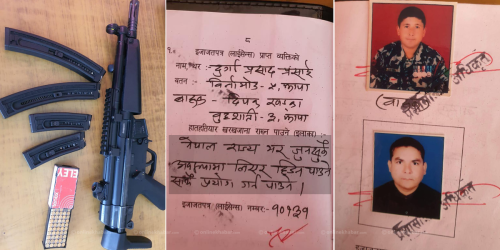 ELEY
८
१.
इजाजतपत्र (लाईसेन्स) प्राप्त व्यक्तिको
नाम, थर : दुर्गा प्रसाद प्रसाई
वतन : विर्तामोड - ५, झापा
वाहक - दिपक खड्का
बुद्धशान्ति - ३, झापा
हातहतियार खरखजाना राख्न पाउने (इलाका)
नेपाल राज्य भर जुनसुकै
अवस्थामा लिएर हिंड्न पाउने
साथै प्रयोग गर्न पाउने ।
इजाजतपत्र (लाईसेन्स) नम्बर:- १०१३१